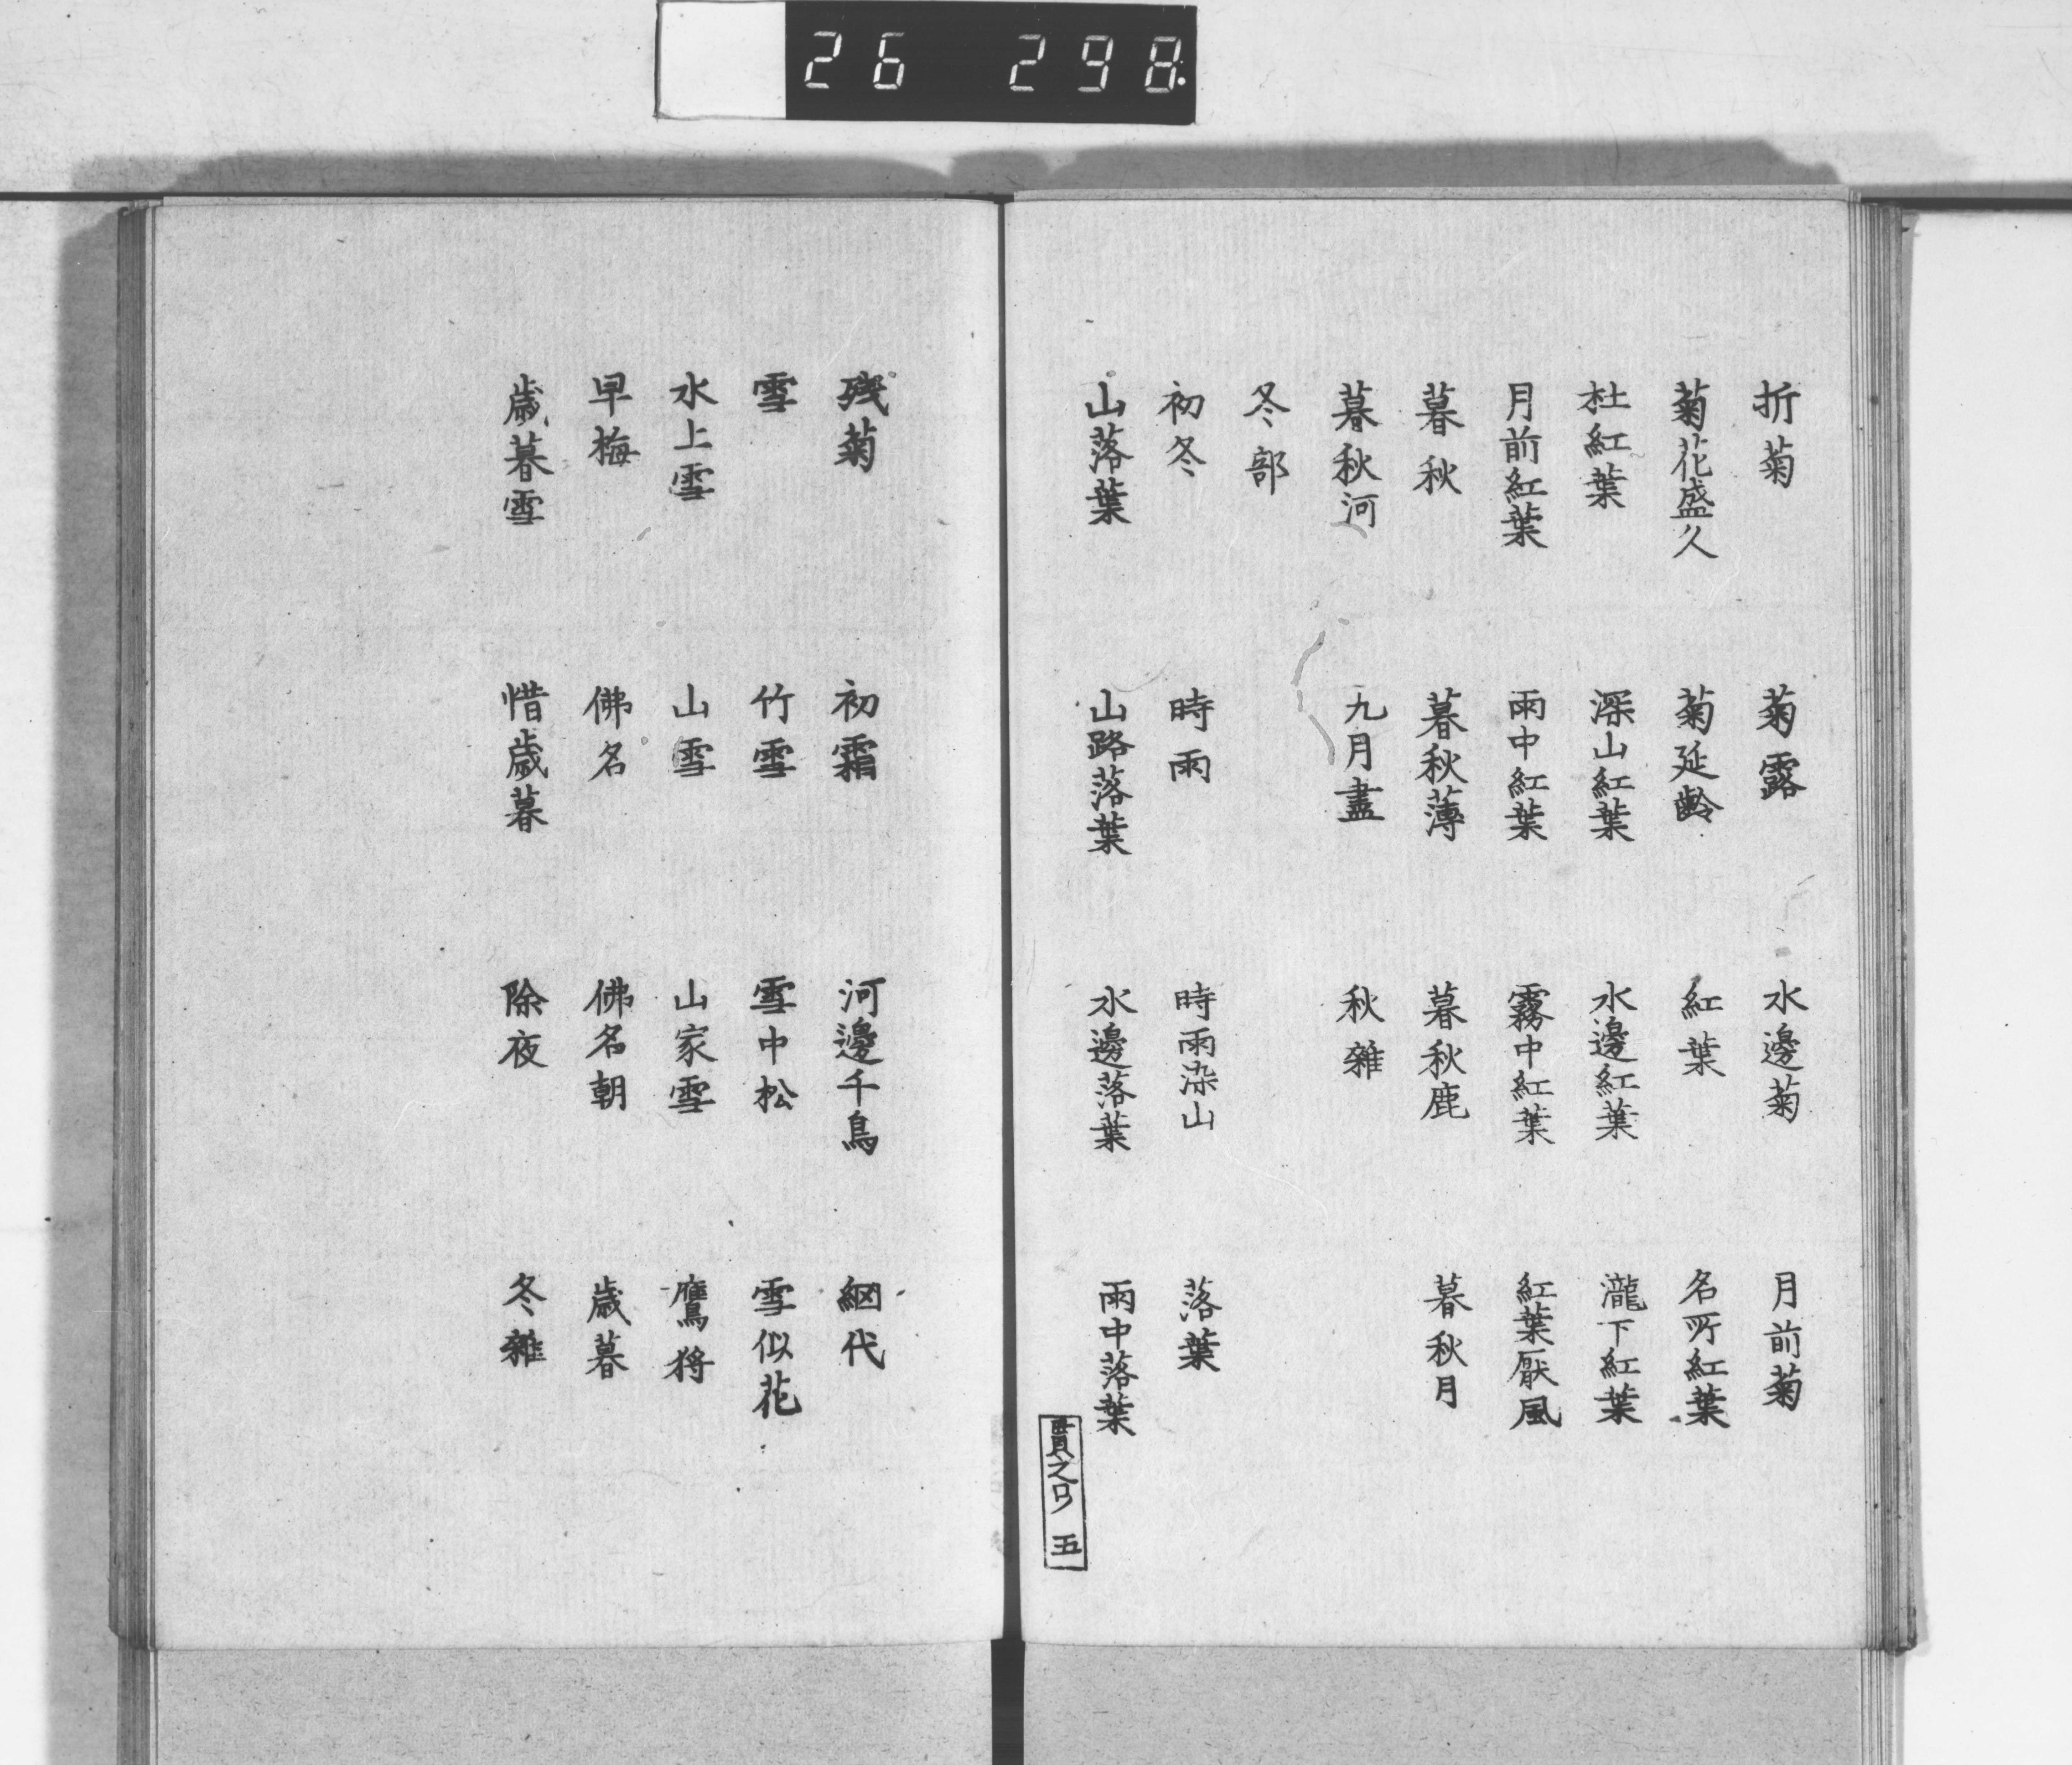 26 298
折菊 菊露 水邊菊 月前菊
菊花盛久 菊延齡 紅葉 名所紅葉
杜紅葉 深山紅葉 水邊紅葉 瀧下紅葉
月前紅葉 雨中紅葉 霧中紅葉 紅葉厭風
暮秋 暮秋薄 暮秋鹿 暮秋月
暮秋河 九月盡 秋雜
冬部
初冬 時雨 時雨染山 落葉
山落葉 山路落葉 水邊落葉 雨中落葉
五
残菊 初霜 河邊千鳥 網代
雪 竹雪 雪中松 雪似花
水上雪 山雪 山家雪 鷹狩
早梅 佛名 佛名朝 歳暮
歳暮雪 惜歳暮 除夜 冬雜